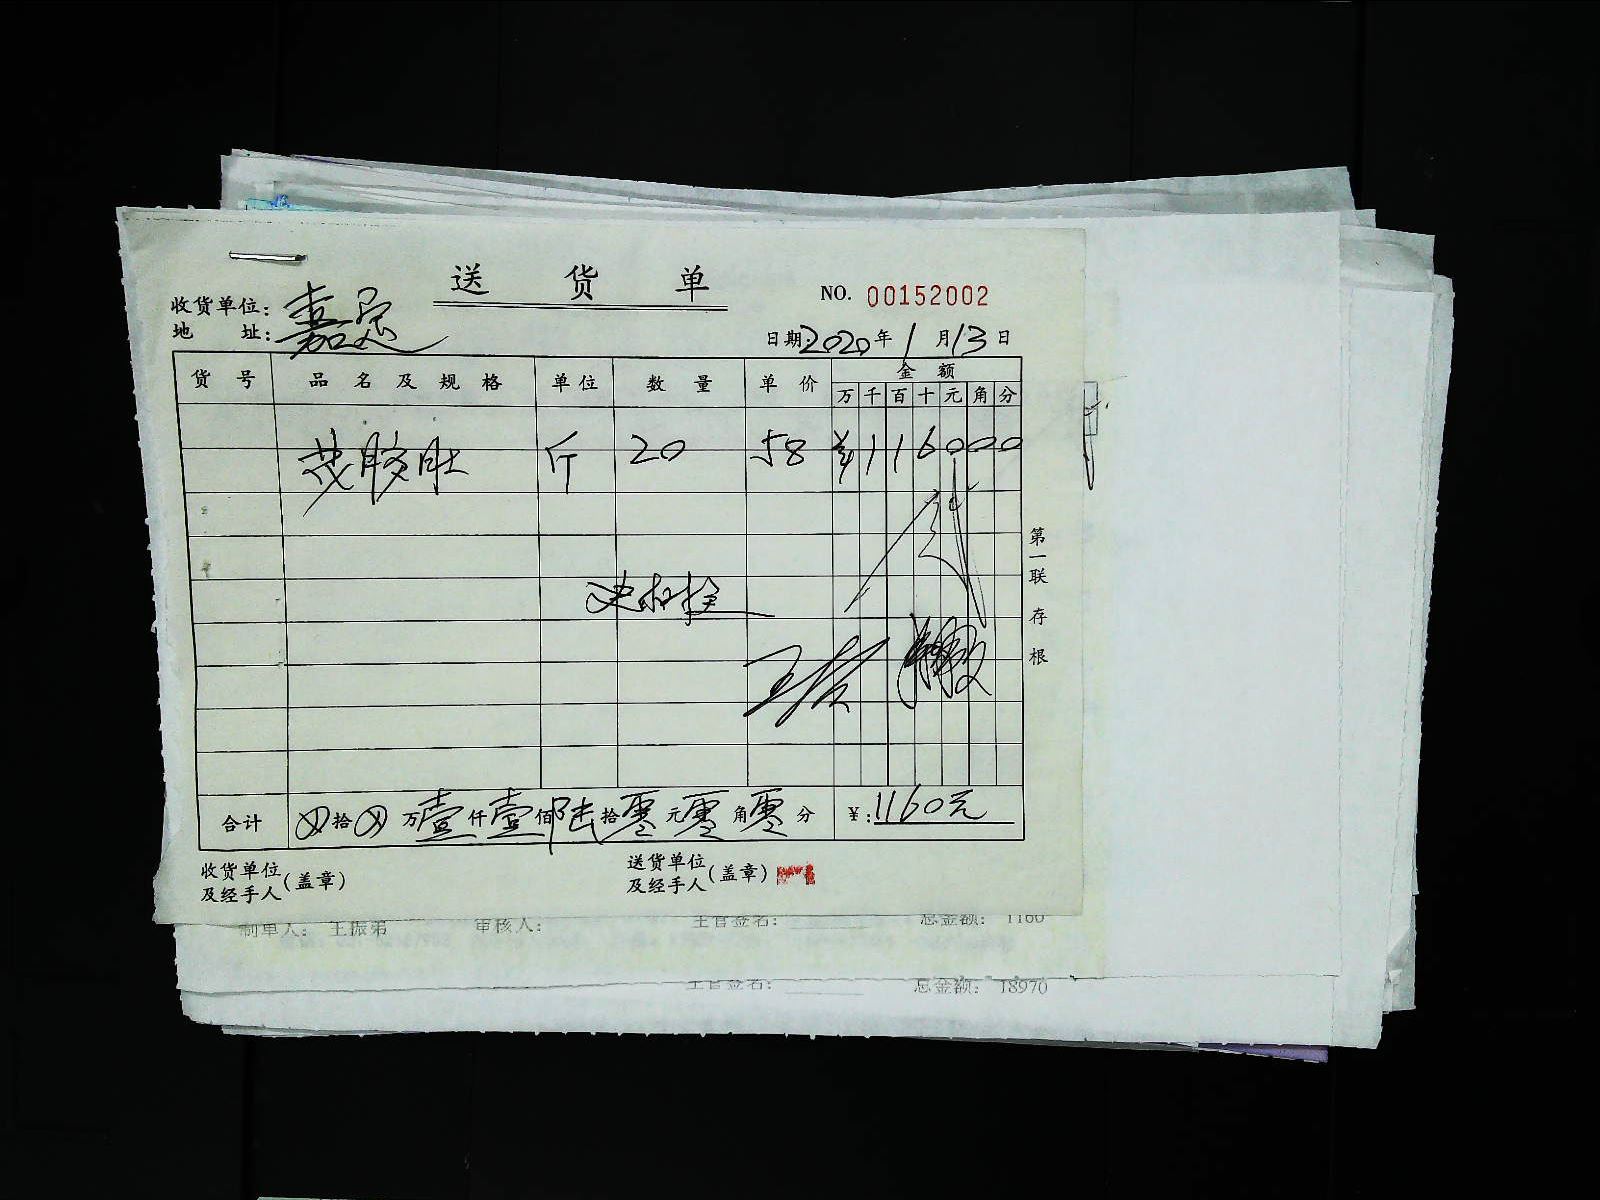 送货单
NO. 00152002
收货单位:
地 址:
日期:2020年1月13日
货号 品名及规格 单位 数量 单价 金额
万 千 百 十 元 角 分
胶肚 斤 20 58 ¥116000
第一联 存根
合计 拾 万壹仟壹佰陆拾零元零角零分 ¥:1160元
收货单位及经手人(盖章)
送货单位及经手人(盖章)
制单人: 王振弟 审核人: 主管签名: 总金额: 1160
主管签名: 总金额: 18970